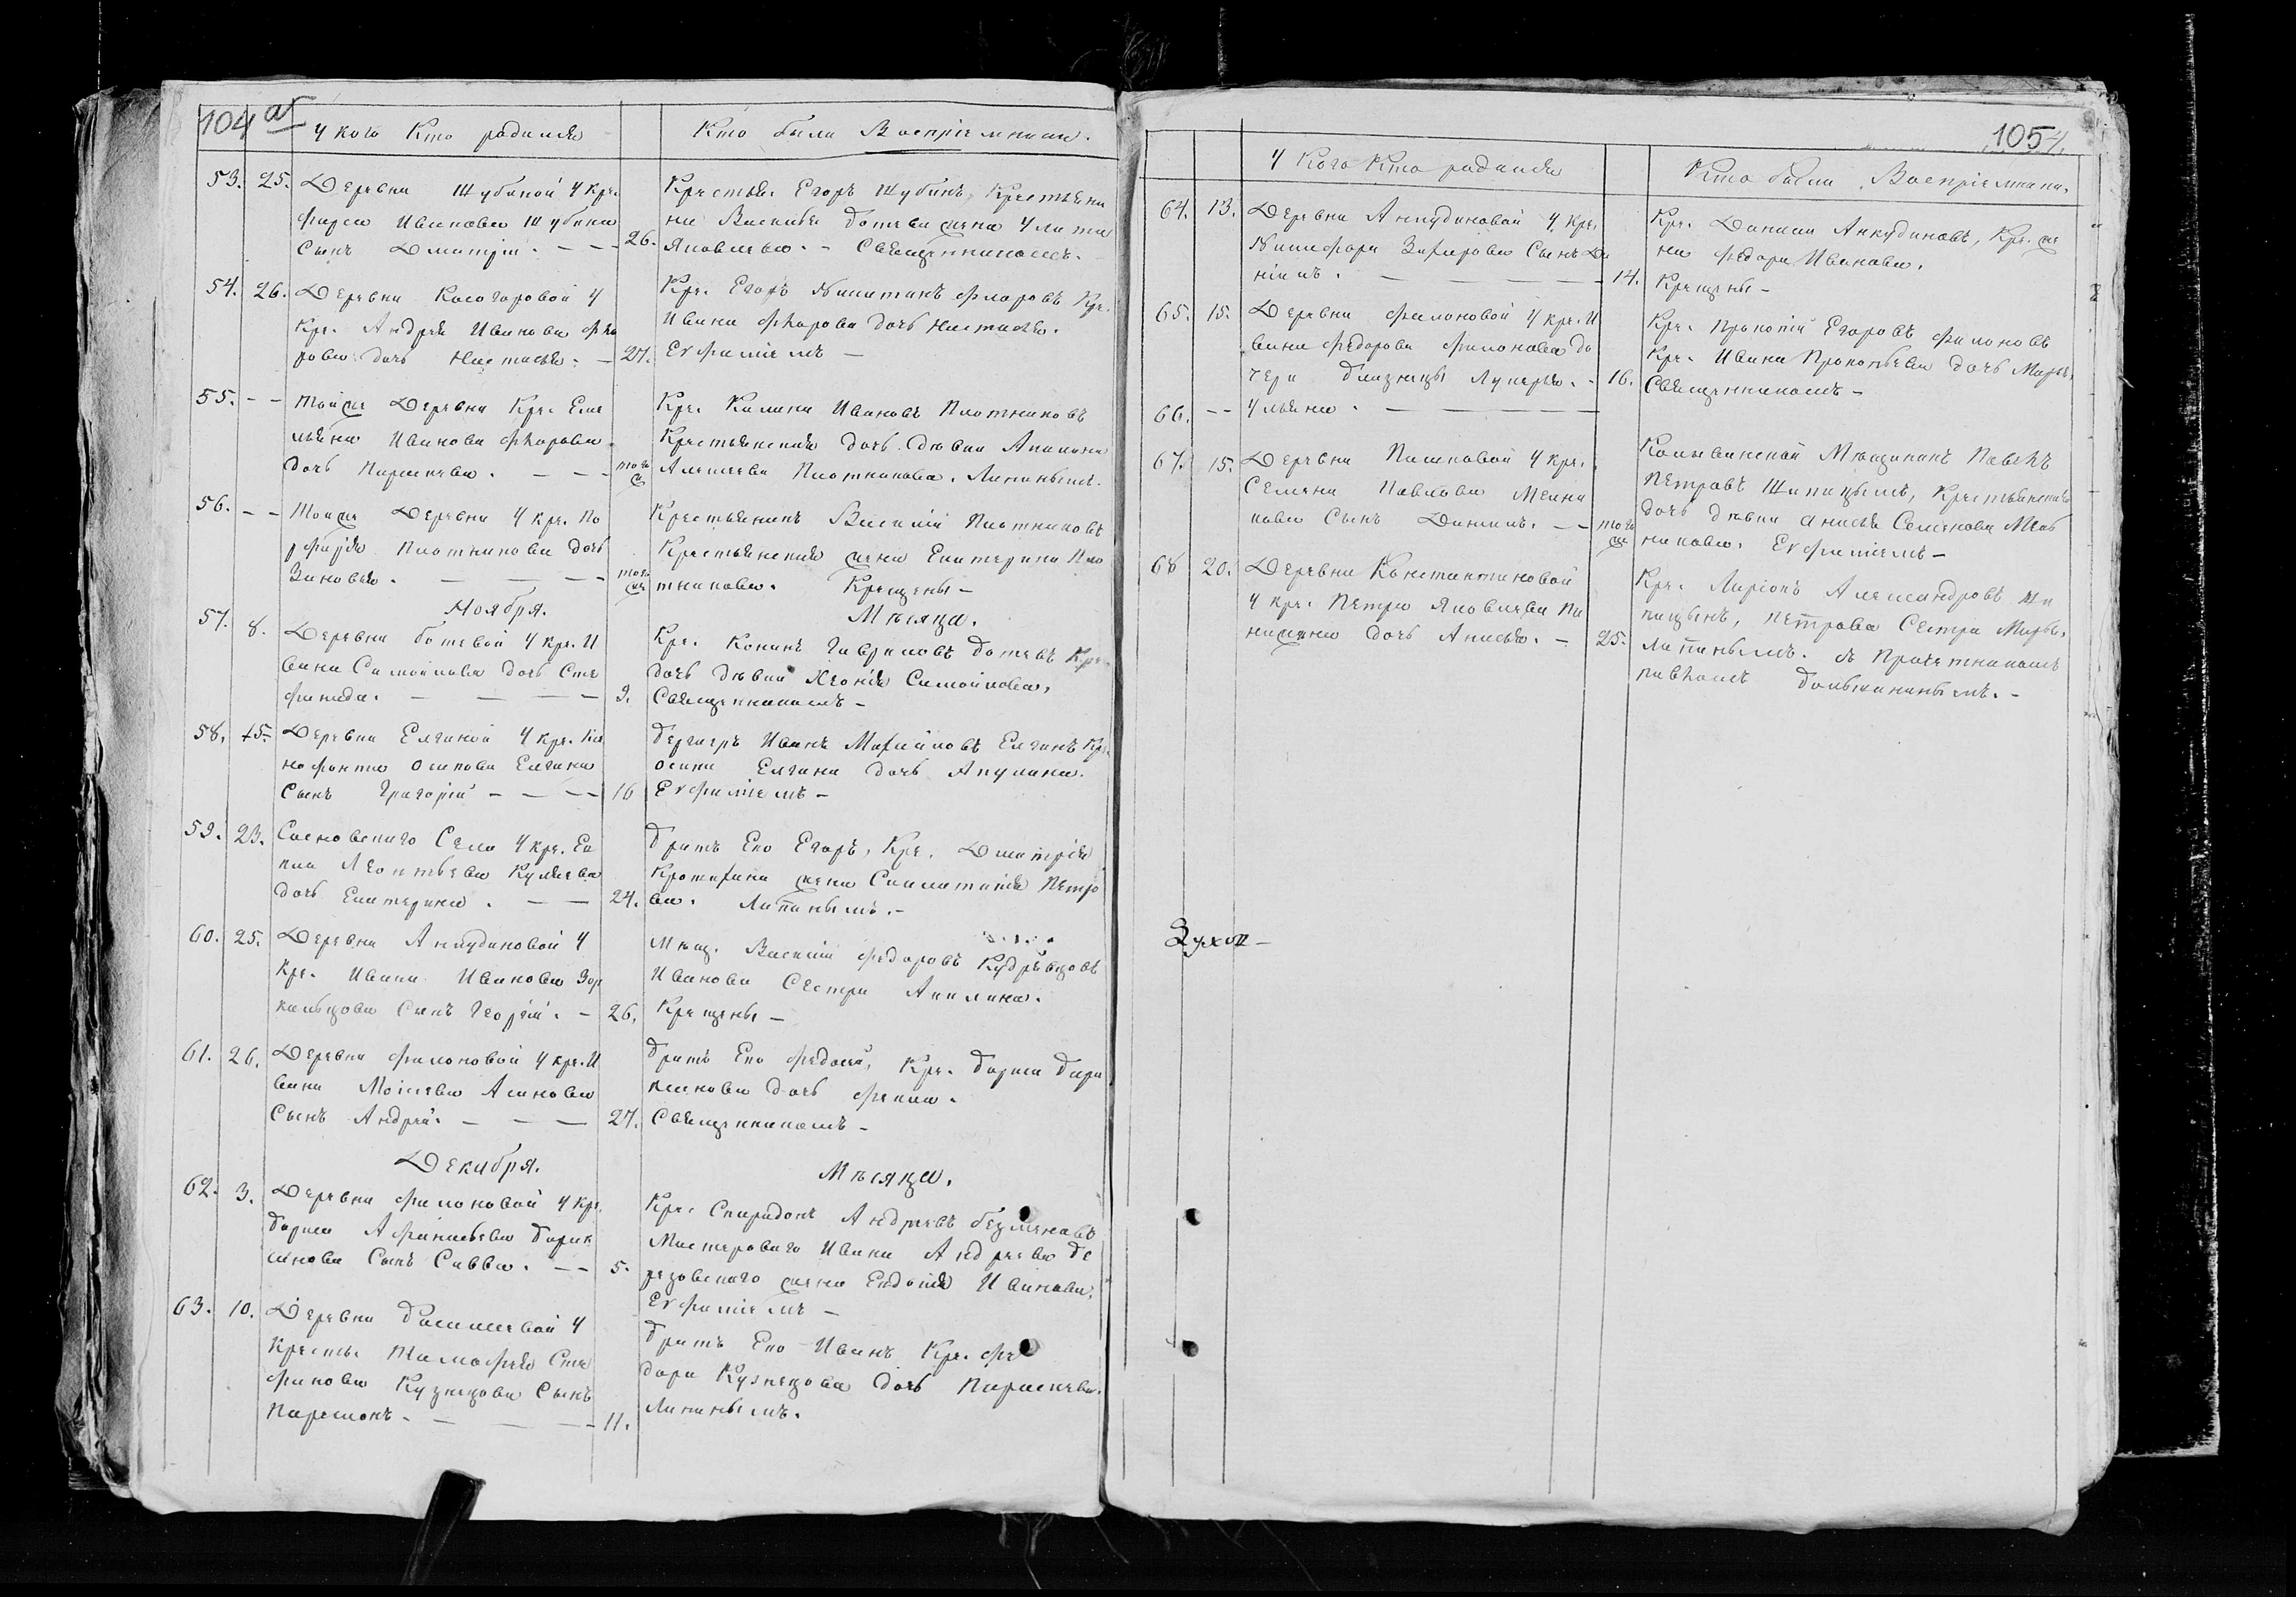 104 об
У кого Кто родился
Кто были Воспріемники.
53. 25. Деревни Шубиной у кре.
Фирса Иванова Шубина
Сынъ Дмитрій. — — 26.
Крестья. Егоръ Шубинъ, Крестьяни
на Василья Ботева жена Улита
Яковлева. — Священникомъ.
54. 26. Деревни Косогоровой у
Кре. Андрея Иванова
рова дочь Настасья. — 27.
Кре. Егоръ Никитинъ Кре.
Ивана дочь Настасья.
Евфиміемъ —
55. — — Тойже Деревни Кре. Еме
льяна Иванова
дочь Парасковья. — — — тогож
Кре. Калина Ивановъ Плотниковъ
Крестьянская дочь девка Акилина
Алексеева Плотникова. Липинымъ.
56. — — Тойже Деревни у кре. По
рфирія Плотникова дочь
Зиновья. — — — тогож
Крестьянинъ Василій Плотниковъ
Крестьянская жена Екатерина Пло
тникова. Крещены —
Ноября.
Мѣсяца.
57. 8. Деревни Ботевой у кре. И
вана Самойлова дочь Сте
фанида. — — — 9.
Кре. Кононъ Гавриловъ Ботевъ Кре.
дочь девка Хіонія Самойлова,
Священникомъ —
58. 15. Деревни Елгиной у кре. Ксе
нофонта Осипова Елгина
Сынъ Григорій — — — 16
Бергеръ Иванъ Михайловъ Елгинъ Кре.
Осипа Елгина дочь Акулина.
Евфиміемъ —
59. 23. Сосновскаго Села у кре. Ев
Леонтьева Куляева
дочь Екатерина. — — 24.
Братъ Его Егоръ, Кре. Дмитрія
жена Соломонія Петро
ва. Липинымъ. —
60. 25. Деревни Анкудиновой у
Кре. Ивана Иванова Зыр
Сынъ Георгій. — 26.
Мѣщ. Василій Федоровъ Кудрявцовъ
Иванова Сестра Акилина.
Крещены —
61. 26. Деревни Филоновой у кре. И
вана Моисева Асанова
Сынъ Андрей. — — — 27.
Братъ Его Федосей, Кре. Бориса Бари
кшнова дочь Фекла.
Священникомъ —
Декабря.
Мѣсяца.
62. 3. Деревни Филоновой у Кре.
Бориса Афанасьева Барик
шнова Сынъ Савва. — — 5.
Кре. Спиридонъ Андреевъ Безменовъ
Мастероваго Ивана Андреева Бе
резовскаго жена Евдокія Иванова.
Евфиміемъ —
63. 10. Деревни у
Кресть. Тимофея Сте
фанова Кузнецова Сынъ
Парамонъ. — — — 11.
Братъ Его Иванъ Кре. Фе
дора Кузнецова дочь Парасковья.
Липинымъ.
105
У Кого Кто родился
Кто были Воспріемники.
64. 13. Деревни Анкудиновой у кре.
Никифора Захарова Сынъ Да
ніилъ. — — — — 14.
Кре. Данила Анкудиновъ, Кре. же
на Федора Иванова.
Крещены —
65. 15. Деревни Филоновой у кре. И
вана Федорова Филонова до
чери близнецы Лукерья. — 16.
Кре. Прокопій Егоровъ Филоновъ
Кре. Ивана Прокопьева дочь Марья.
Священникомъ —
66. — — Ульяна. — — — —
67. 15. Деревни Пашковой у кре.
Семена Павлова Мельни
кова Сынъ Данилъ. — — тогож
Колыванской Мѣщининъ Павелъ
Петровъ Шипицынъ, Крестьянская
дочь девка Анисья Семенова Мель
никова. Евфиміемъ —
68 20. Деревни Константиновой
у кре. Петра Яковлева Па
дочь Анисья. — 25.
Кре. Ларіонъ Александровъ Ши
пицынъ, Петрова Сестра Марья.
Липинымъ. съ Причетникомъ
Павломъ
Зухов —